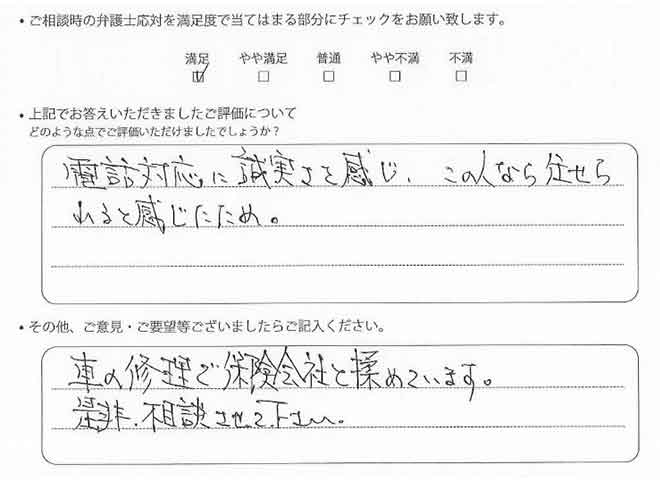 ・ご相談時の弁護士応対を満足度で当てはまる部分にチェックをお願い致します。
満足 やや満足 普通 やや不満 不満
・上記でお答えいただきましたご評価について
どのような点でご評価いただけましたでしょうか?
電話対応に誠実さを感じ、この人なら任せら
れると感じたため。
・その他、ご意見・ご要望等ございましたらご記入ください。
車の修理で保険会社と揉めています。
是非、相談させて下さい。